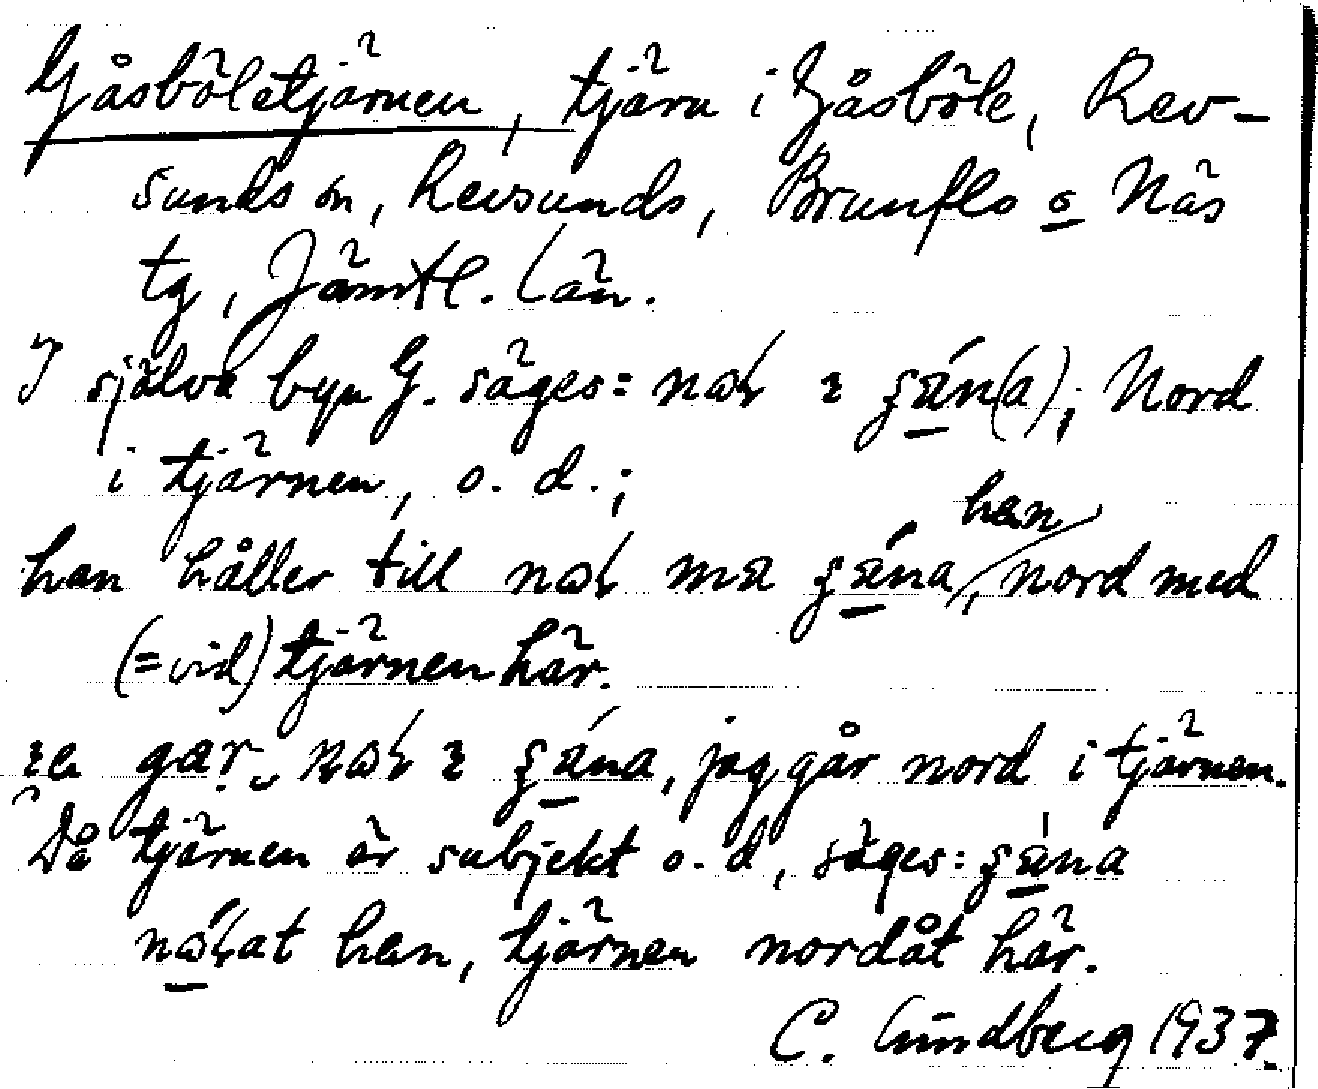 Gåsböletjärnen, tjärn i Gåsböle, Rev-
sunds sn, Revsunds, Brunflo o Näs
tg, Jämtl. Län.
I själva byn G. säges: Nord
i tjärnen, o. d.;
han
han håller till nord med
(=vid) tjärnen här.
jag går nord i tjärnen.
Då tjärnen är subjekt o. d, säges:
han, tjärnen nordåt här.
C. Lundberg 1937.